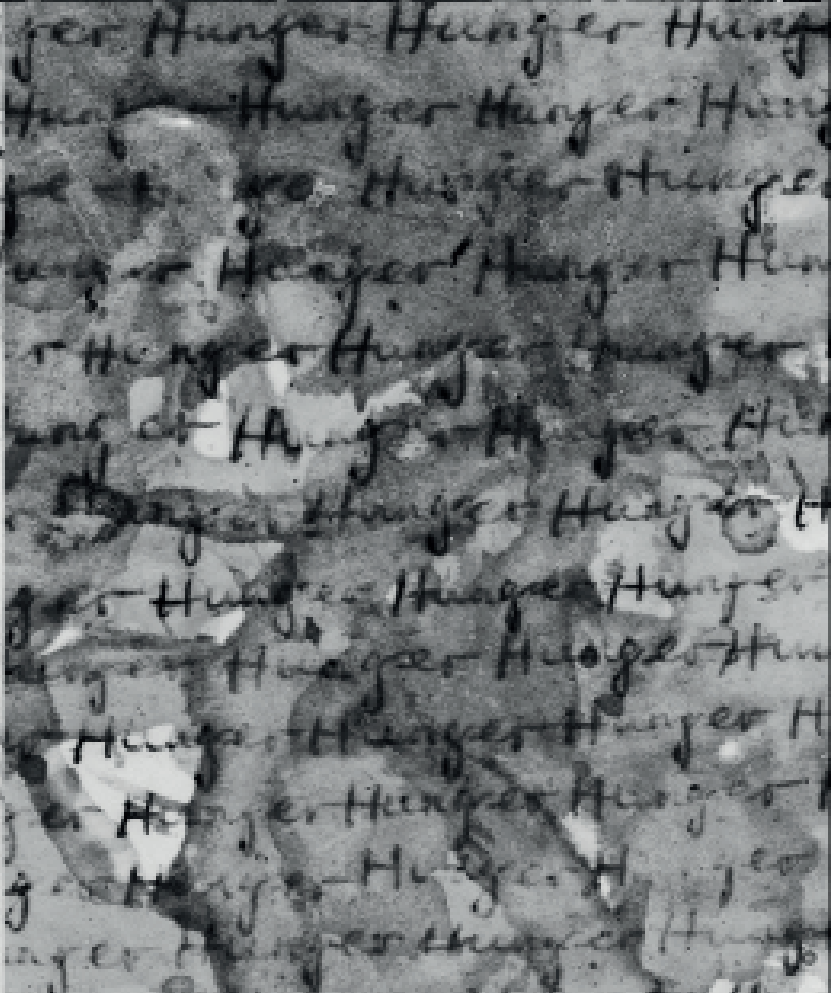 ger Hunger Hunger Hunge
Hunger Hunger Hunger Hung
Hunger Hunger
unger Hunger Hunger Hun
r Hunger Hunger Hunger
ung er Hunger Hunger Hun
Hunger Hunger Hunger H
ger Hunger Hunger Hunger
unger Hunger Hunger Hun
Hunger Hunger Hunger H
ger Hunger Hunger Hunger
Hunger Hunger H ger
nger Hunger Hunger Hung